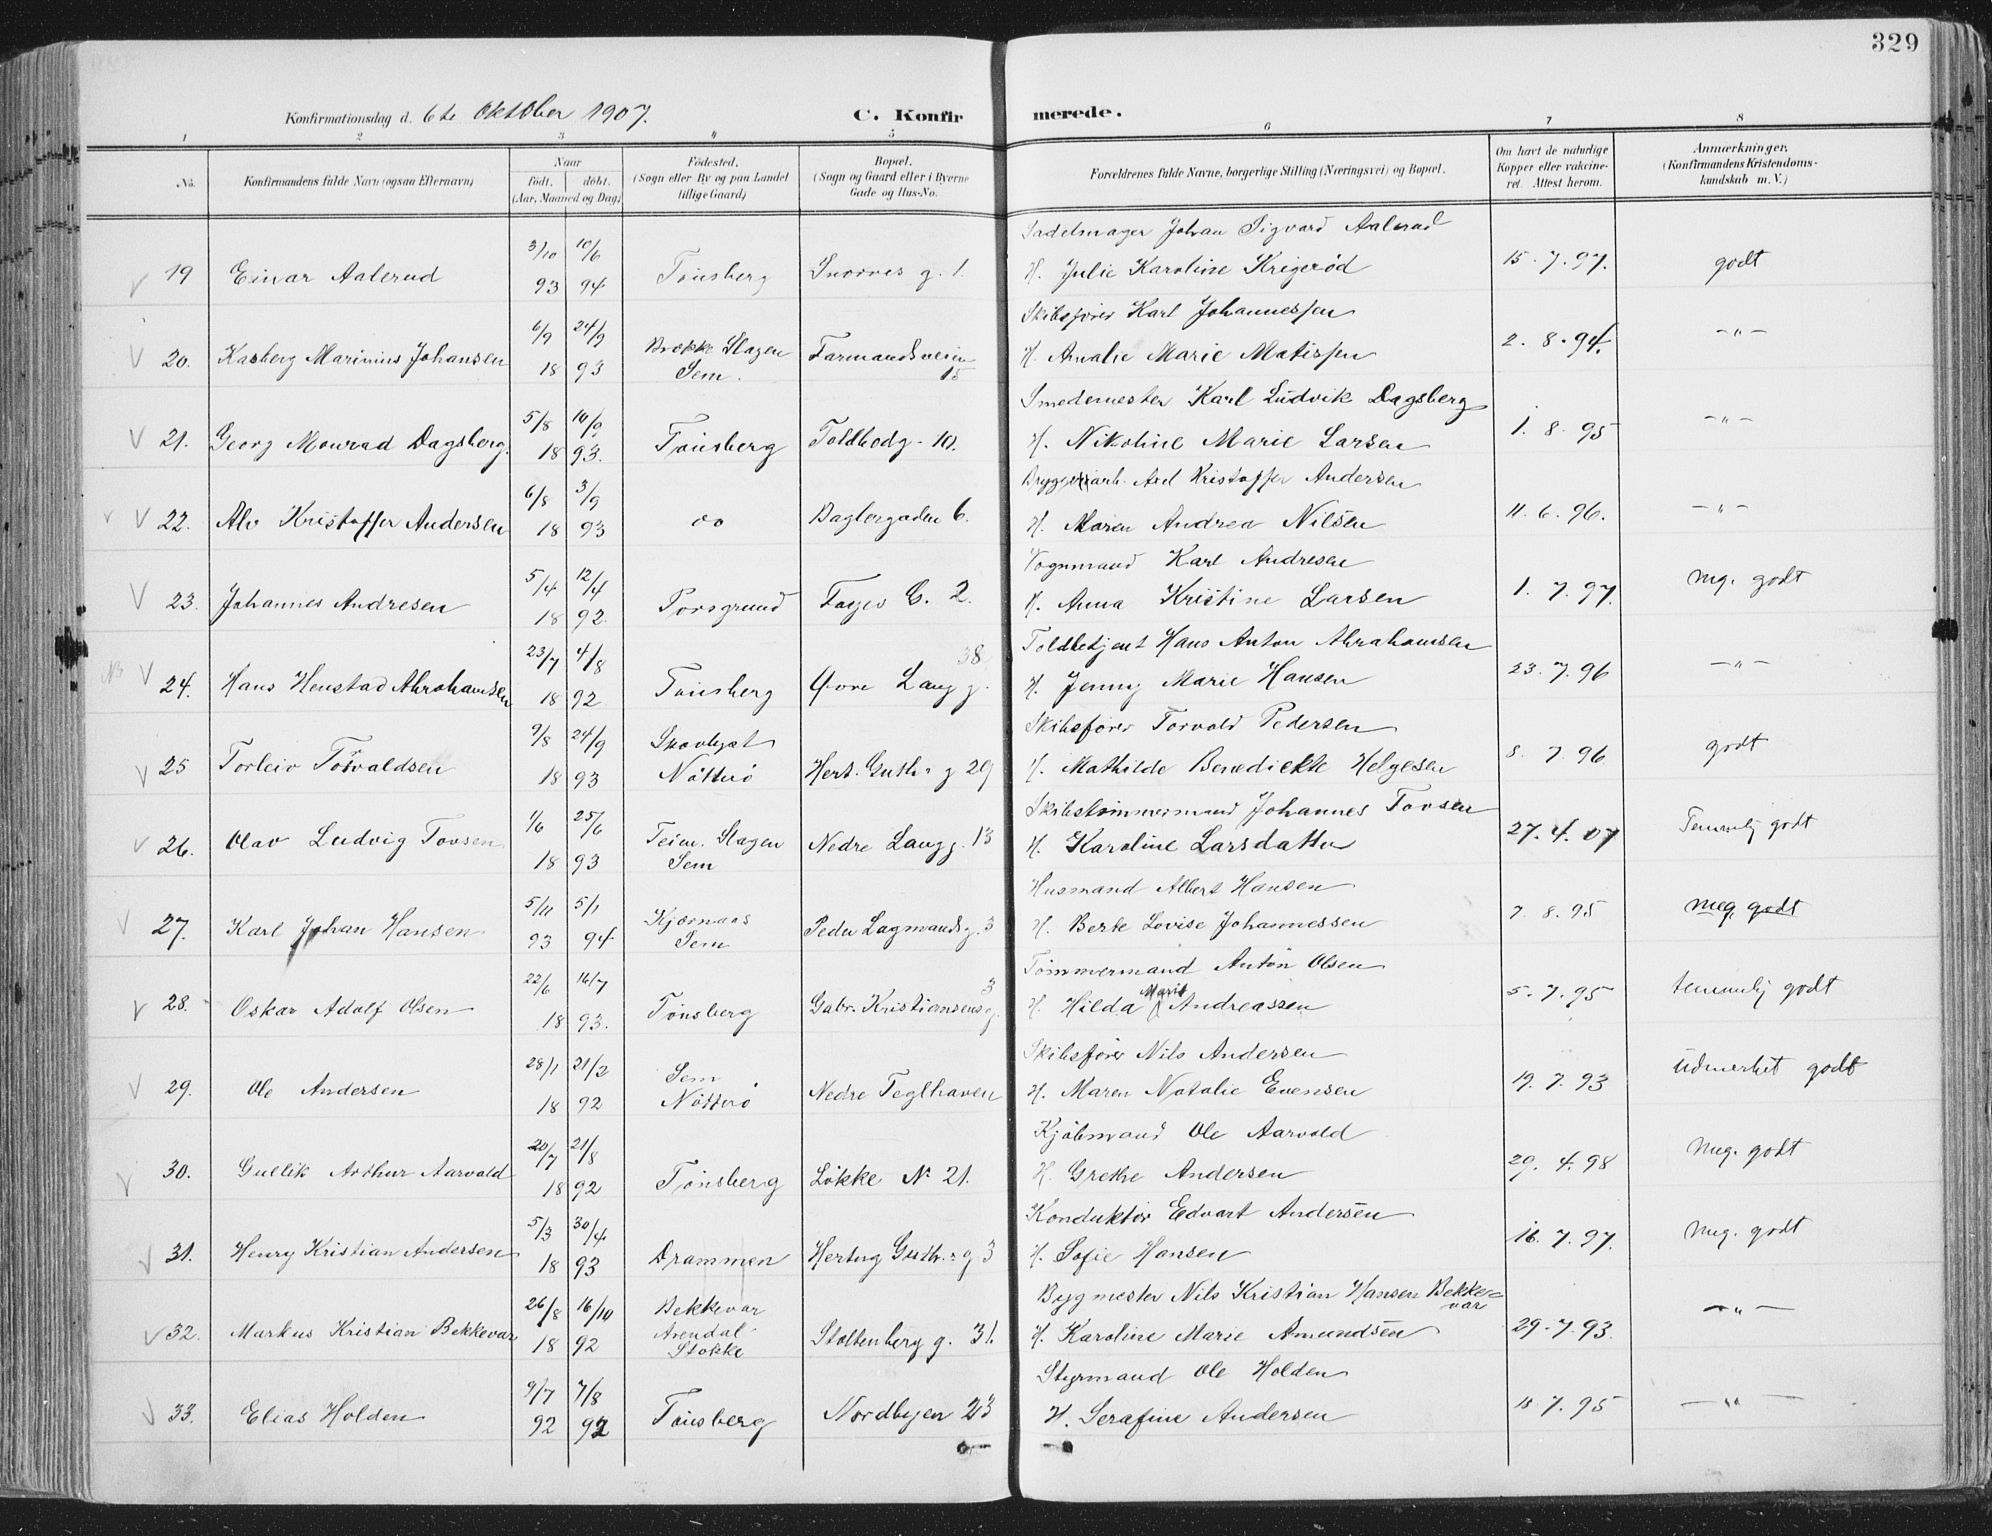 329
Konfirmationsdag d. 6te Oktober 1907. C. Konfirmerede.
1 2 3 4 5 6 7 8
No. Konfirmandens fulde Navn (ogsaa Efternavn) Naar født, døbt. (Aar, Maaned og Dag) Fødested. (Sogn eller By og paa Landet tillige Gaard) Bopæl. (Sogn og Gaard eller i Byerne Gade og Hus-No. Forældrenes fulde Navne, borgerlige Stilling (Næringsvei) og Bopæl. Om havt de naturlige Kopper eller vakcineret. Attest herom. Anmærkninger. (Konfirmandens Kristendomskundskab m. V.)
3/10 10/6 Sadelmager Johan Sigvard Aalerud
19 Einar Aalerud 93 94 Tønsberg Snorres g. 1. H. Julie Karoline Krigerød 15.7.97. godt
6/9 24/9 Skibsfører Karl Johannessen
20. Kasberg Marinius Johansen 18 93 Brekke Slagen Sem. Farmandsveien 15 H. Amalie Marie Matissen 2.8.94. -"-
5/8 10/9 Smedemester Karl Ludvik Dagsberg
21. Georg Monrad Dagsberg. 18 93. Tønsberg Toldbodg. 10. H. Nikoline Marie Larsen 1.8.95 -"-
6/8 3/9 Bryggeriarb. Axel Kristoffer Andersen
22. Alv Kristoffer Andersen 18 93 do Baglergaden 6. H. Maren Andrea Nilsen 11.6.96. -"-
5/4 12/4 Vognmand Karl Andresen
23. Johannes Andresen 18 92. Porsgrund Føyes G. 2. H. Anna Kristine Larsen 1.7.97. meg. godt
23/7 4/8 38. Toldbetjent Hans Anton Abrahamsen
24. Hans Henstad Abrahamsen 18 92 Tønsberg Øvre Lang g. H. Jenny Marie Hansen 23.7.96 -"-
9/8 24/9 Skibsfører Torvald Pedersen
25 Torleiv Torvaldsen 18 93 Nøtterø Hert. Guth.s g 29 H. Mathilde Benedickte Helgesen 8.7.96 godt
1/6 25/6 Skibstømmermand Johannes Tovsen
26. Olav Ludvig Tovsen 18 93 Teien. Slagen Sem Nedre Langg. 13 H. Karoline Larsdatter 27.4.07 Temmelig godt
5/11 5/1 Husmand Albert Hansen
27. Karl Johan Hansen 93 94 Kjærnaas Sem Peder Lagmandsg. 3 H. Berte Lovise Johannessen 7.8.95 meg. godt
22/6 16/7 Tømmermand Anton Olsen
28. Oskar Adolf Olsen 18 93. Tønsberg Gabr. Kristiansens g. 3 H. Hilda Marie Andreassen 5.7.95 temmelig godt
28/1 21/2 Skibsfører Nils Andersen
29. Ole Andersen 18 92 Sem Nøtterø Nedre Teglhaven H. Maren Natalie Evensen 19.7.93 udmerket godt
20/7 21/8 Kjøbmand Ole Aarvold
30. Gullik Arthur Aarvold 18 92 Tønsberg Løkke No 21. H. Grethe Andersen 29.4.98 Meg. godt
5/3 30/4 Konduktør Edvart Andersen
31. Henry Kristian Andersen 18 93 Drammen Hertug Guth.s g. 3 H. Sofie Hansen 16.7.97. Meg. godt
26/8 16/10 Bekkevar Bygmester Nils Kristian Hansen Bekkevar
32. Markus Kristian Bekkevar 18 92 Arendal Stokke Stoltenberg g. 31. H. Karoline Marie Amundsen 29.7.93. -"-
9/7 7/8 Styrmand Ole Holden
33. Elias Holden 92 92 Tønsberg Nordbyen 23 H. Serafine Andersen 13.7.95 -"-